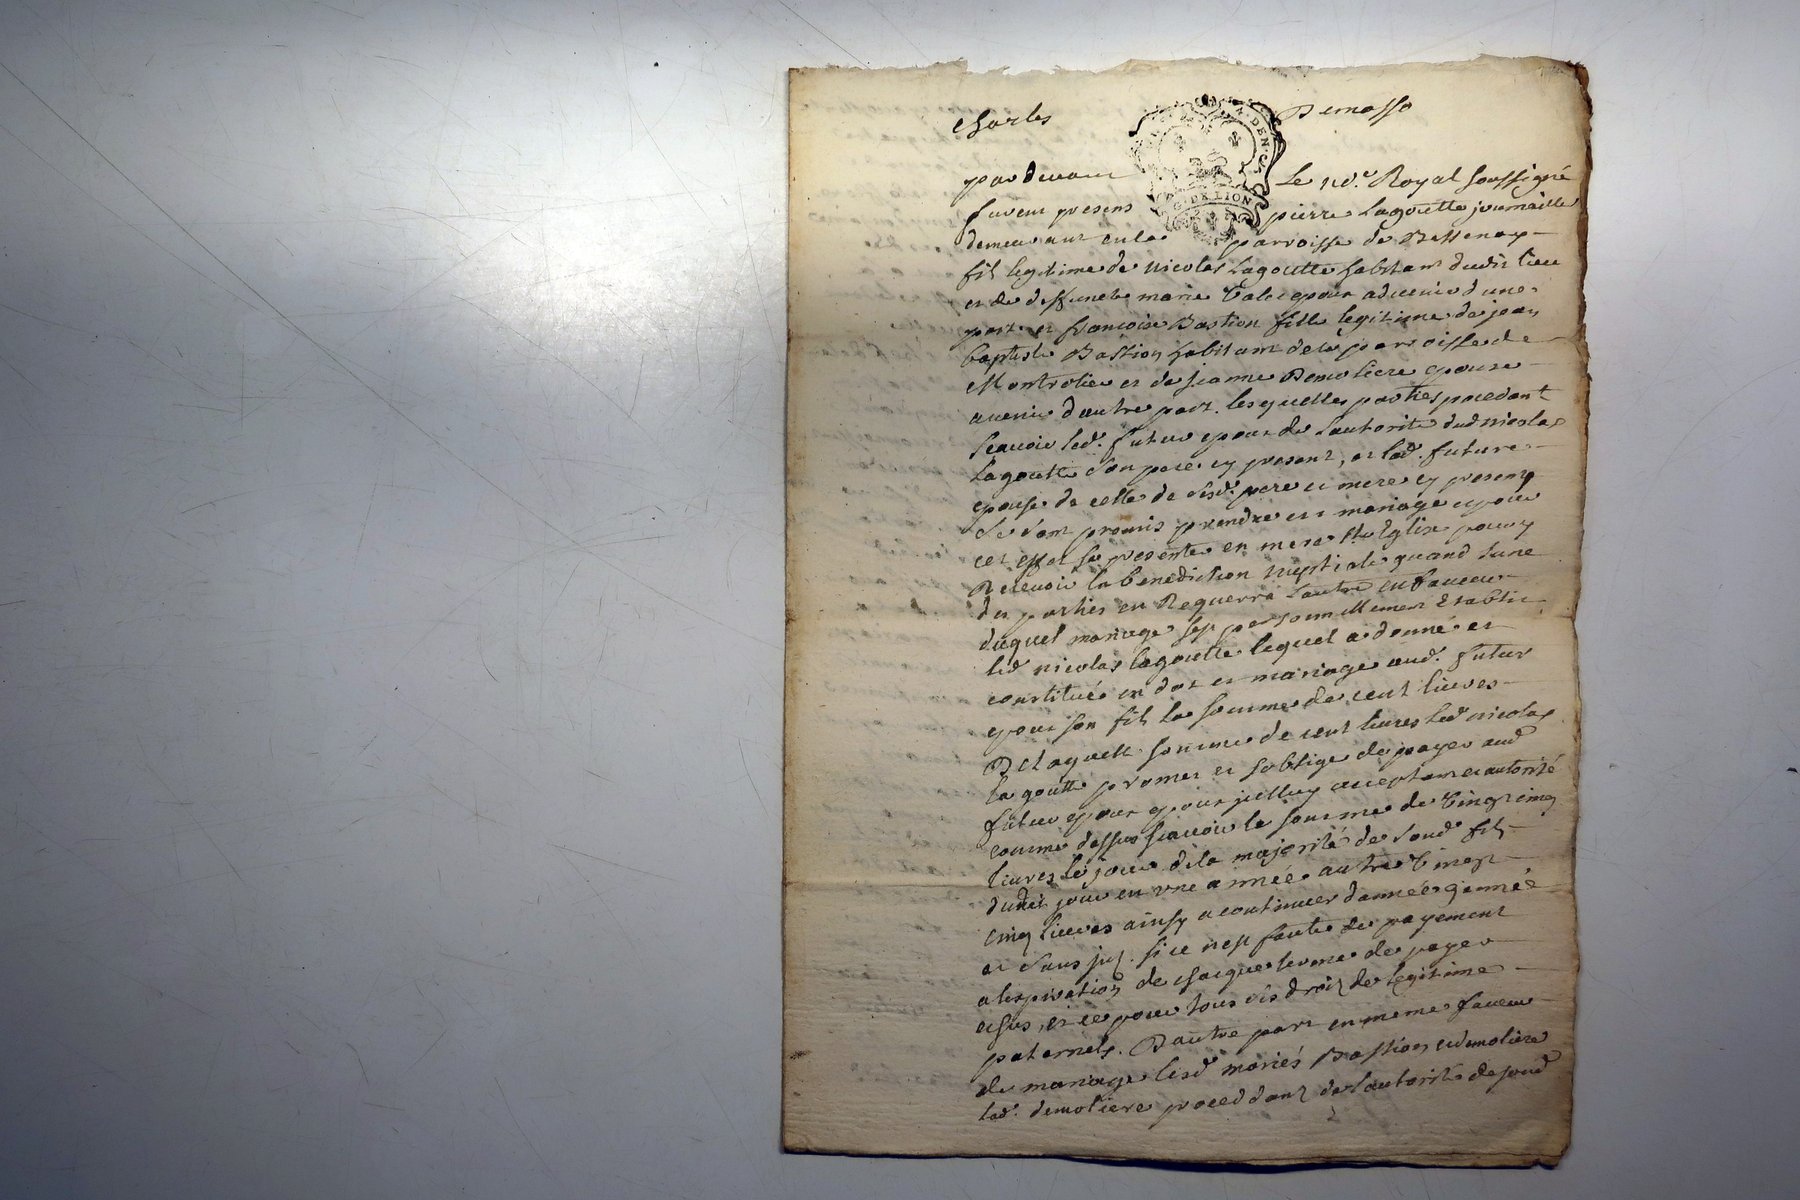 Charles Demasso
G. DE LION
par devant Le no.re Royal soussigné
furent presens pierre Lagoutte journaillier
demeurant en la parroisse de Bessenay
fils legitime de nicolas Lagoutte habitant dudit lieu
et de deffuncte marie epour advenir d'une
part. et francoise Bastion fille legitime de jean
baptiste Bastion habitant de la parroisse de
Montrotier et de jeanne Demoliere epouse
avenir d'autre part. lesquelles parties procedant
scavoir led. futur epour de l'autorité dud nicolas
Lagoutte son pere cy present, et lad. future
epouse de celle de sesd. pere et mere cy presents
se sont promis prendre en mariage epour
cet effet se presenter en mere Ste Eglise pour y
Recevoir la benediction nuptiale quand l'une
des parties en Requerra l'autre en faveur
duquel mariage sest personnellement Etablie
led nicolas lagoutte lequel a donné et
constitué en dot et mariage aud. futur
epour son fils la somme de cent livres
De laquelle somme de cent livres led nicolas
la goutte promet et soblige de payer aud
futur epour epour jcelluy acceptant et autorisé
comme dessus scavoir la somme de vingt cinq
livres le jour de la majorité de soud fils
dudit jour en une année autre vingt
cinq livres ainsy a continuer d'année en année
et sans jnt. si ce nest faute de payement
a lexpiration de chacque terme de payer
echus, et ce pour tous ses droit de legitime
paternels. D'autre part en meme faveur
de mariage lesd mariés Bastion et demoliere
lad. demoliere proceddant de l'autorité de soud